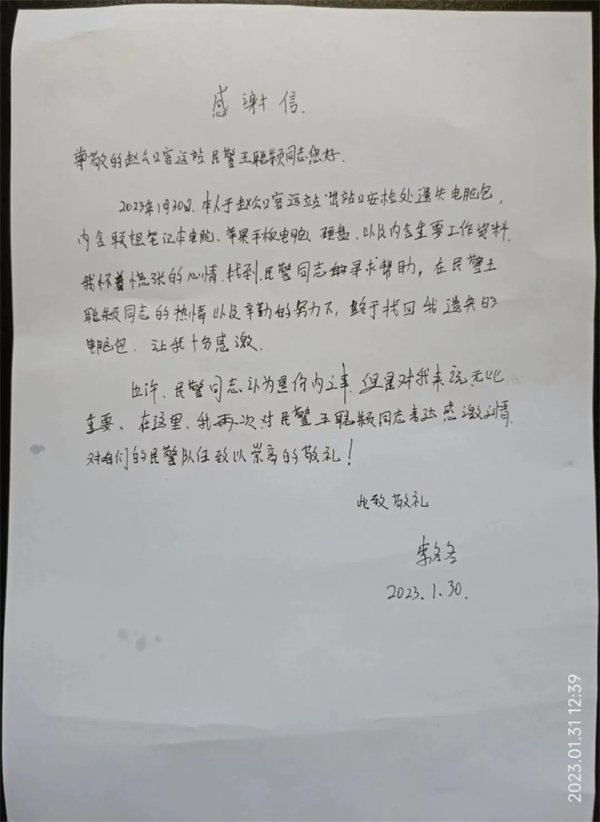 感谢信.
尊敬的赵公口客运站民警王聪颖同志您好.
2023年1月30日.本人于赵公口客运站出站口安检处遗失电脑包,
内含联想笔记本电脑、苹果平板电脑、硬盘、以及内含重要工作资料,
我怀着慌张的心情.找到民警同志们寻求帮助,在民警王
聪颖同志的热情以及辛勤的努力下,终于找回我遗失的
电脑包.让我十分感激.
也许.民警同志认为是份内之事.但是对我来说无比
重要、在这里.我再次对民警王聪颖同志表达感激之情.
对咱们的民警队伍致以崇高的敬礼!
此致敬礼
李冬冬
2023.1.30.
2023.01.31 12:39